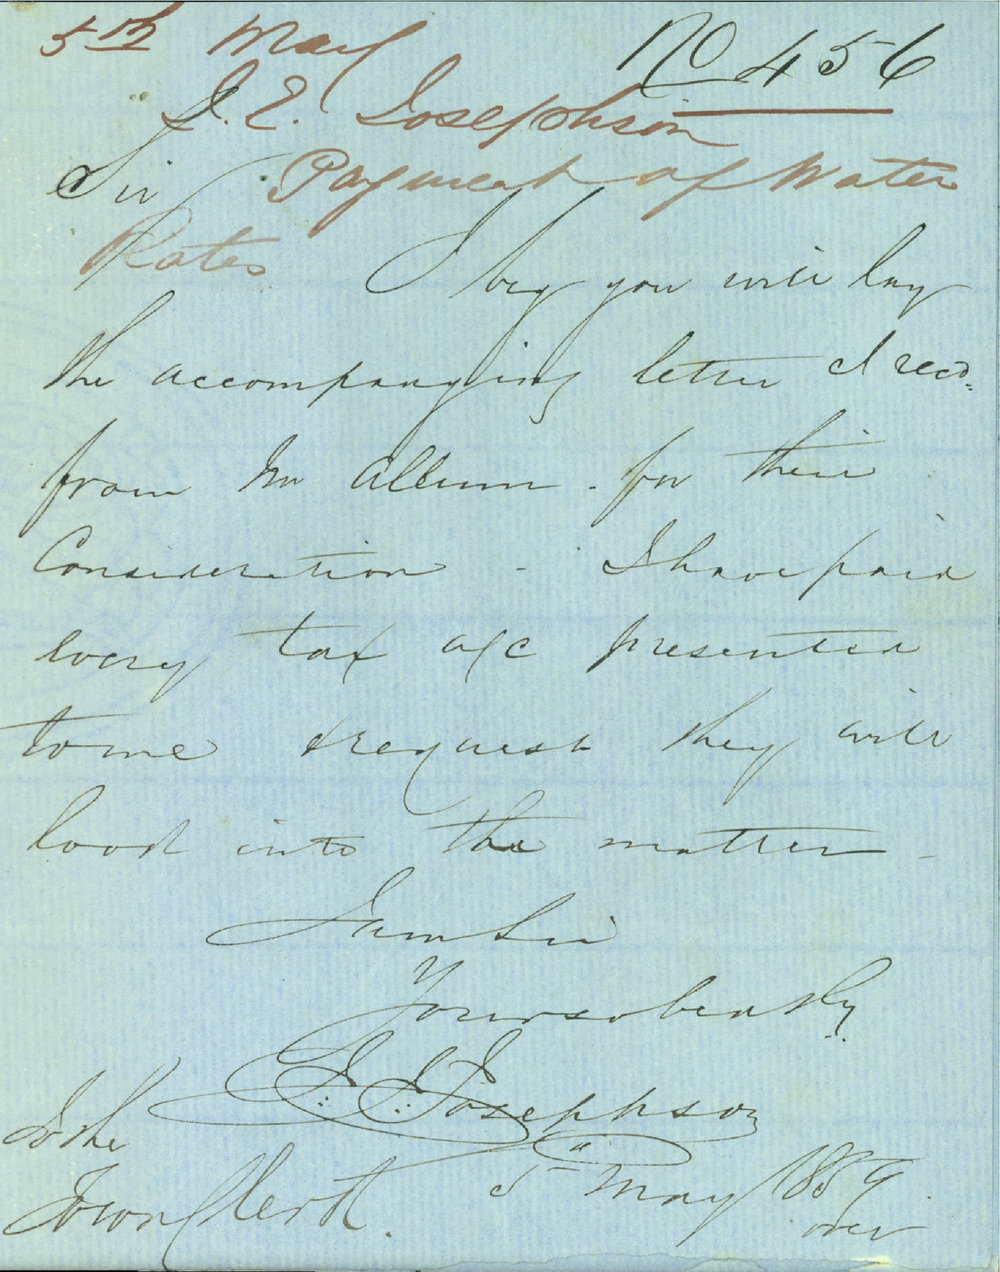 5th May No 456
J. E. Josephson
Sir Payment of Water
Rates I beg you will lay
the accompanying letter I recd.
from Mr Allum - for their
Consideration - I have paid
every tax a/c presented
to me & request they will
look into the matter -
I am Sir
Yours obently
J. J. Josephson
To the
Town Clerk. 5th May 1859.
over